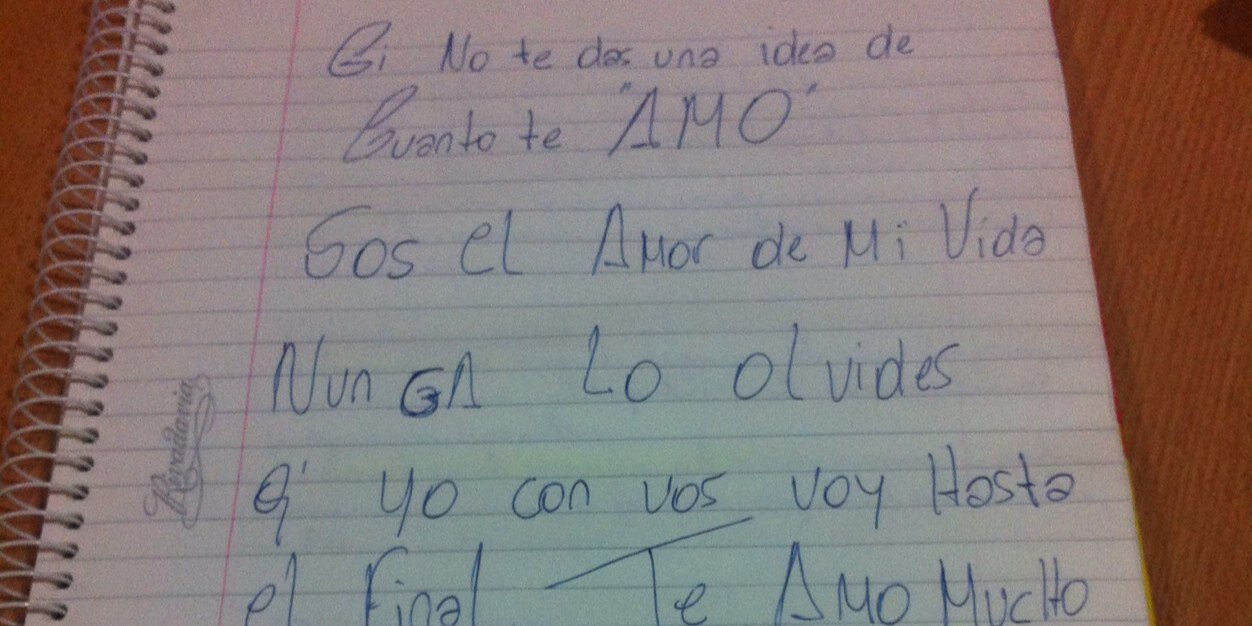 Gi No te das una idea de
Cuanto te "AMO"
Sos el Amor de Mi Vida
NunCA Lo olvides
q' yo con vos voy Hasta
el Final Te AMO MucHo
Rivadavia